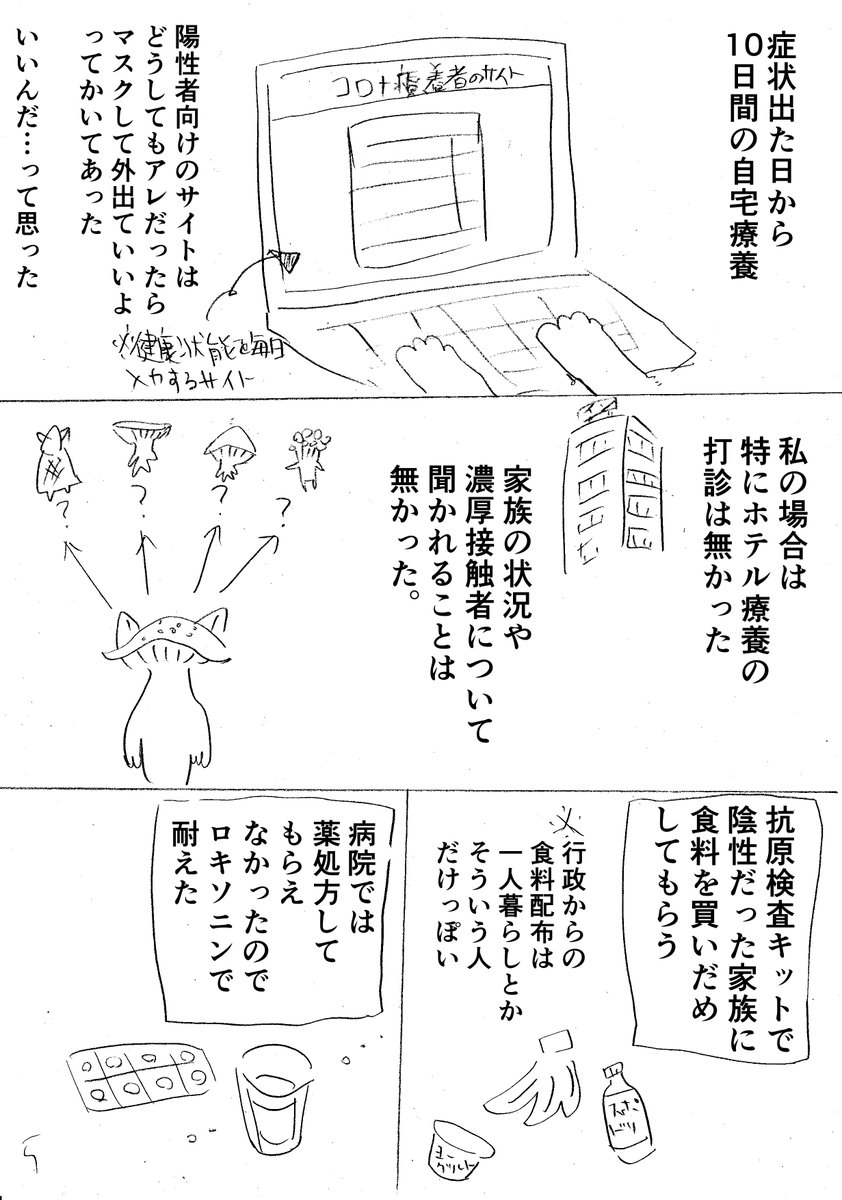 症状出た日から
10日間の自宅療養
コロナ療養者のサイト
陽性者向けのサイトは
どうしてもアレだったら
マスクして外出ていいよ
ってかいてあった
いいんだ…って思った
※健康状態を毎日
入力するサイト
私の場合は
特にホテル療養の
打診は無かった
家族の状況や
濃厚接触者について
聞かれることは
無かった。
?
?
?
?
抗原検査キットで
陰性だった家族に
食料を買いだめ
してもらう
※行政からの
食料配布は
一人暮らしとか
そういう人
だけっぽい
スポ
ドリ
ヨー
グルト
病院では
薬処方して
もらえ
なかったので
ロキソニンで
耐えた
5